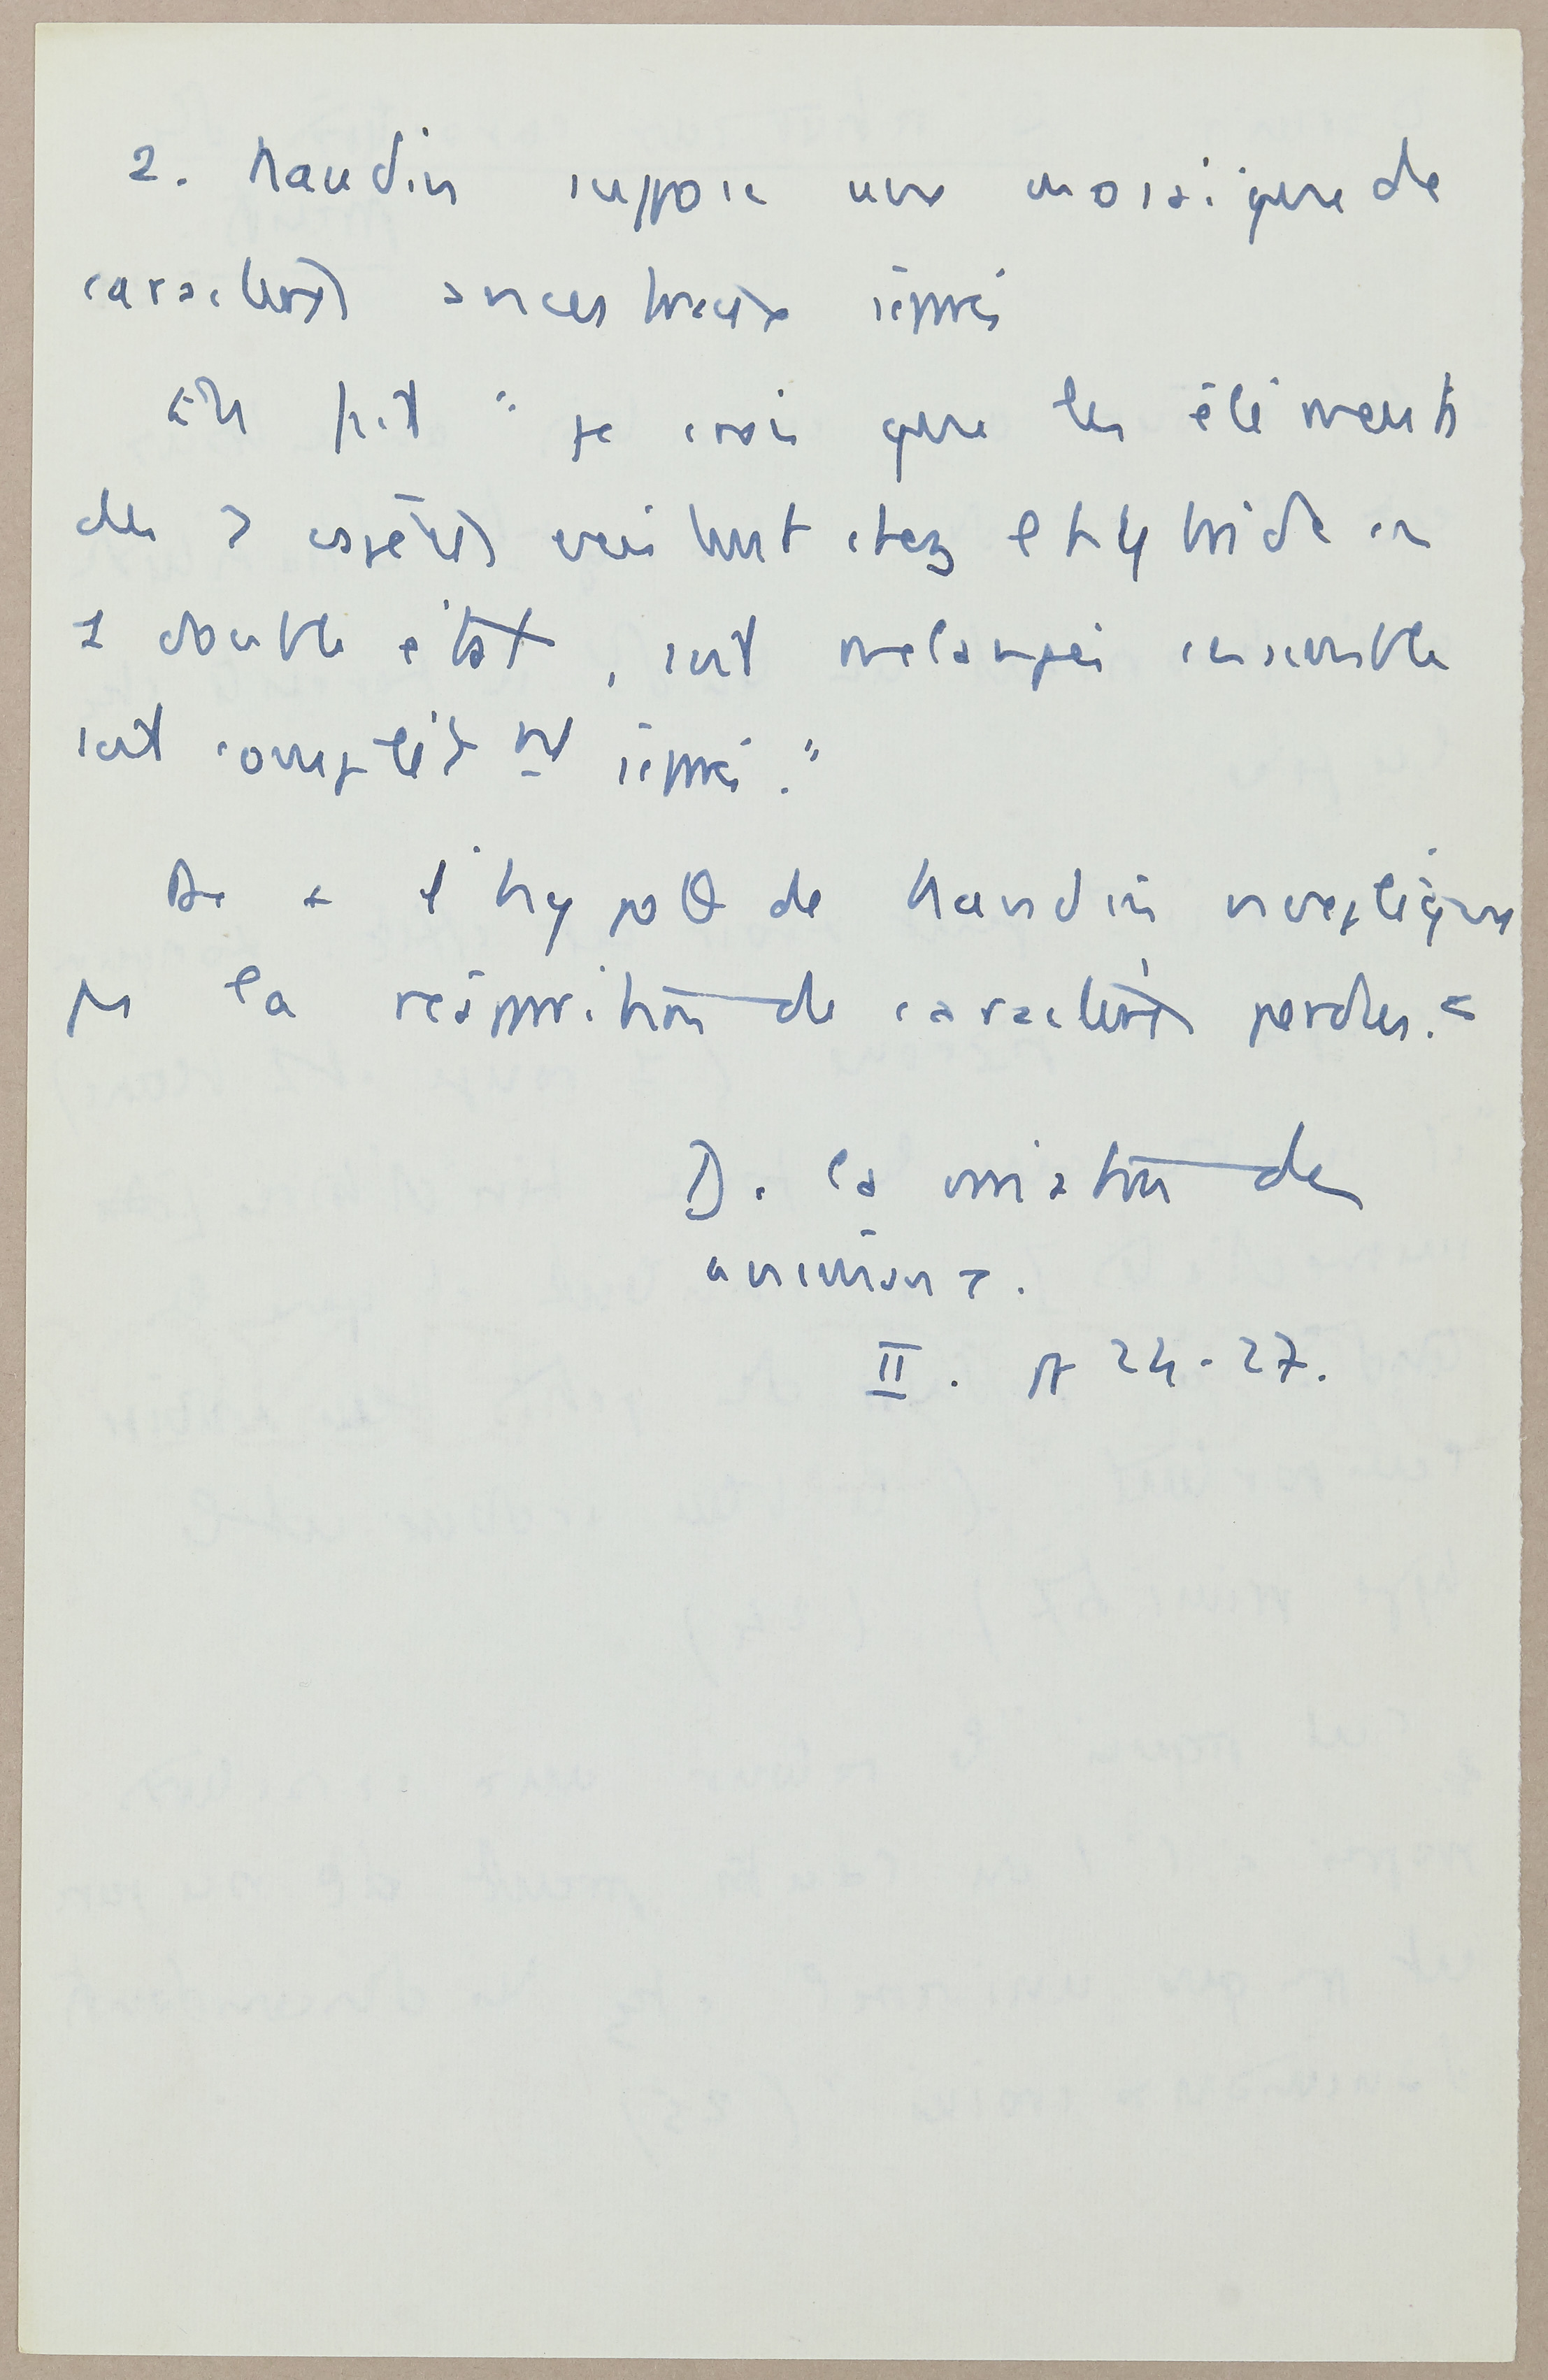 2. Naudin suppose une mosaïque de
caractères ancestraux séparés
En fait " je crois que les éléments
des 2 espèces existent chez l'hybride en
1 double état, soit mélangés ensemble
soit complèt nt séparés."
De + l'hypoθ de Naudin n'explique
pas la réapparition de caractères perdus.
D. la variation des
animaux.
II. p 24-27.